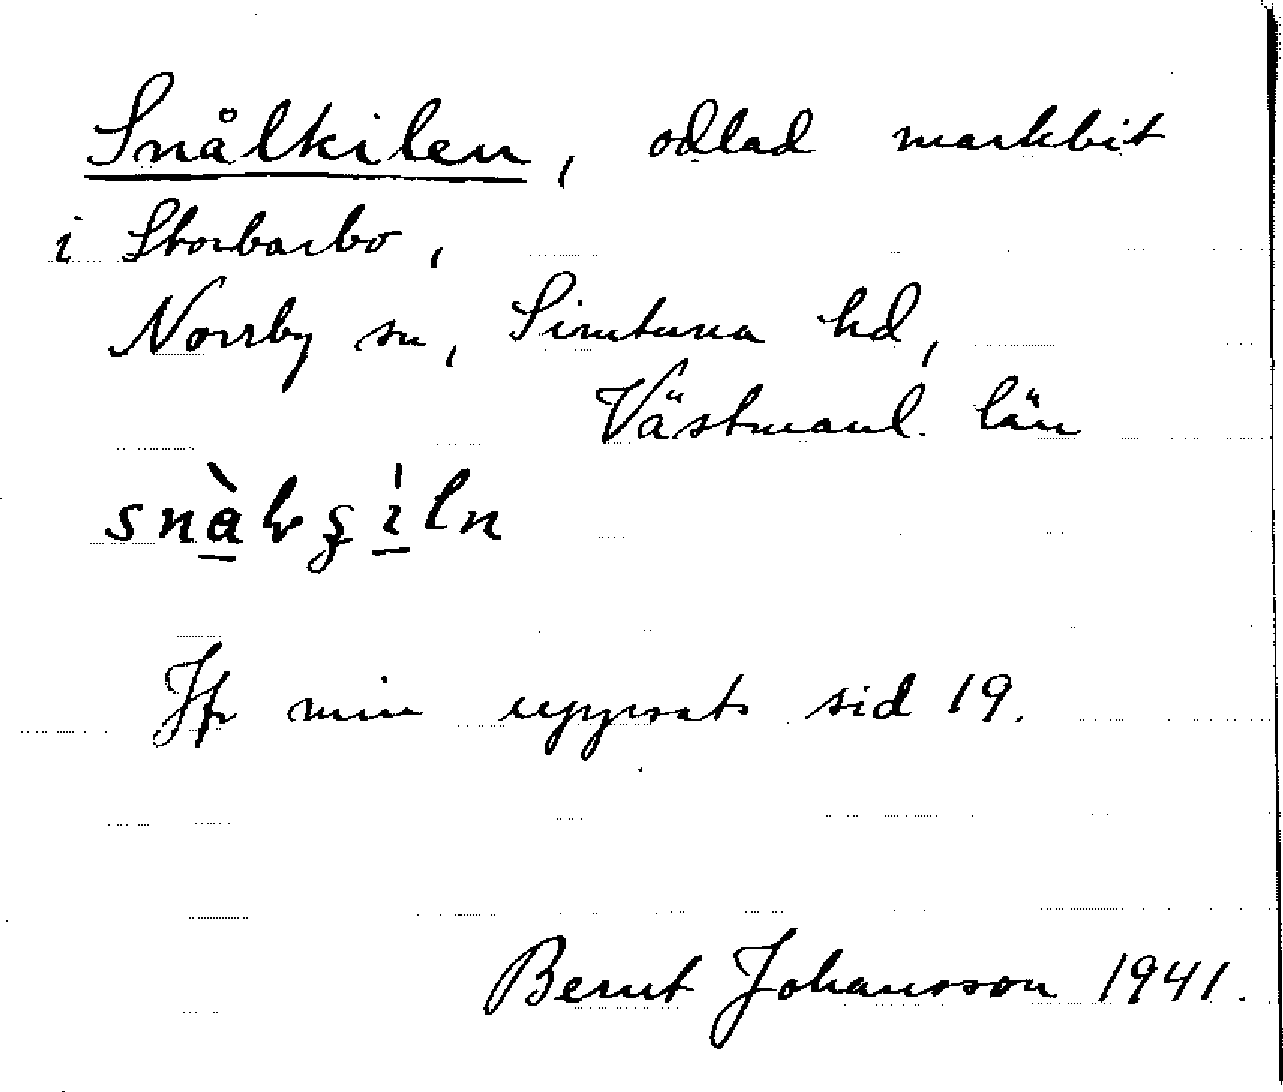 Snålkilen, odlad markbit
i Storbarbo,
Norrby sn, Simtuna hd,
Västmanl. län
Jfr min uppsats sid 19.
Bernt Johansson 1941.